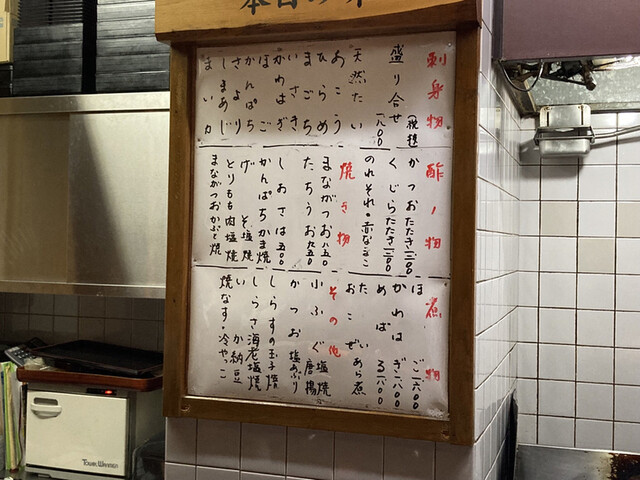 刺身物
盛り合せ (税抜)
一八〇〇
天然たい
あこう
ひらめ
まごち
いさき
かわはぎ
ほご
かんぱち
さより
しまあじ
まいか
酢ノ物
かつおたたき一三〇〇
くじらたたき一三〇〇
のれそれ・赤なまこ
焼き物
まながつお八五〇
たちうお九五〇
しおさば五〇〇
かんぱちかま焼
げそ塩焼
とりもも肉塩焼
まながつおかぶと焼
煮物
ほご一六〇〇
かわはぎ一六〇〇
めばる一六〇〇
たいあら煮
おこぜ
その他
小ふぐ塩焼 唐揚
かつお塩あぶり
しらすの玉子焼
しらさ海老塩焼
いか納豆
焼なす・冷やっこ
TOWEL WARMER